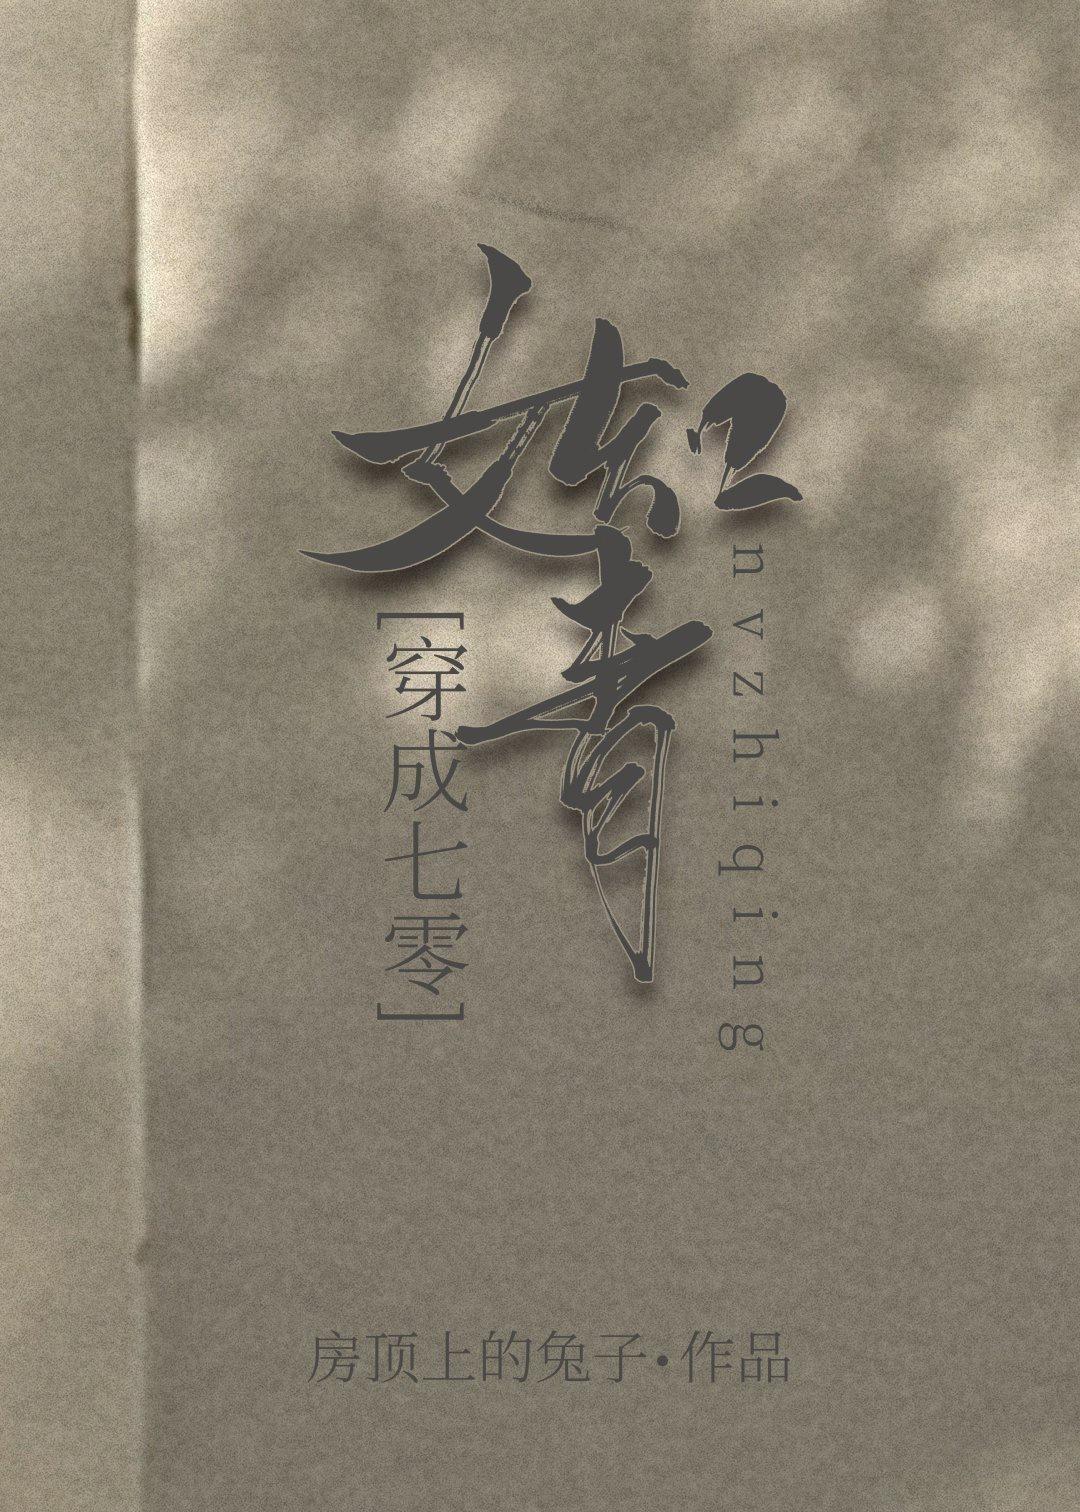 女知青
nvzhiqing
[穿成七零]
房顶上的兔子·作品